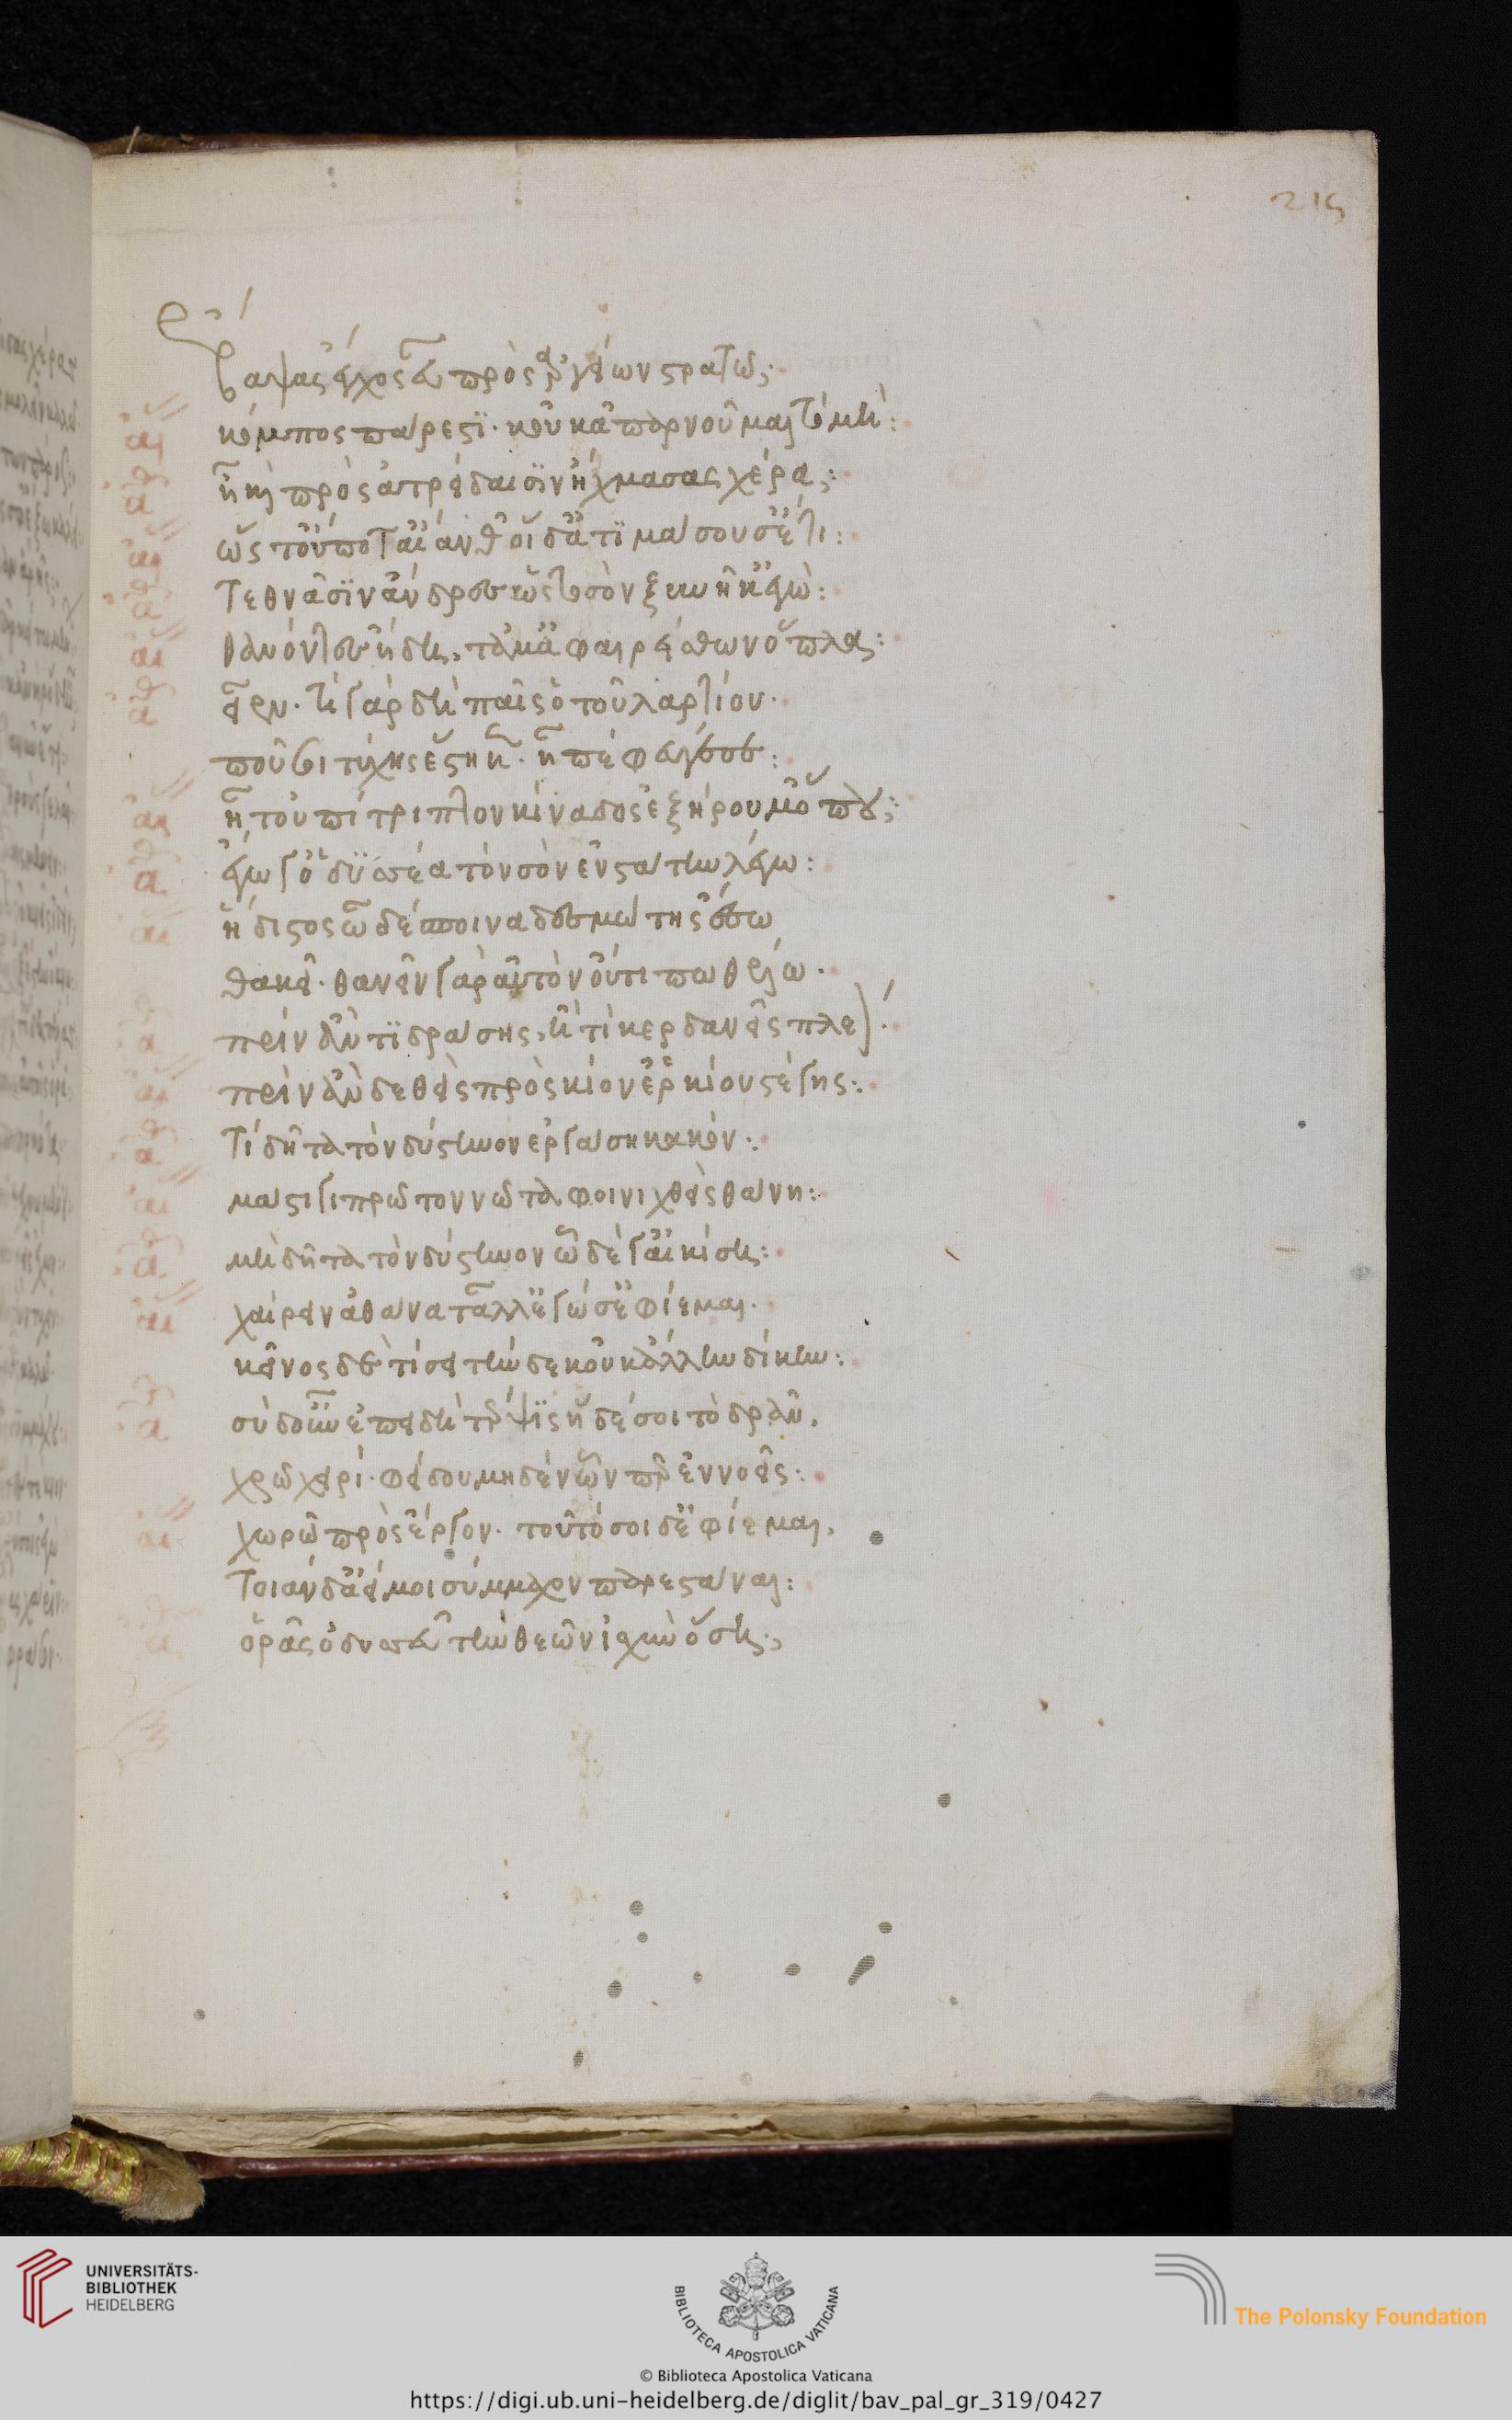 215
ἔβαψας ἔγχος εὖ πρὸς ἀργείων στρατῶ;
κόμπος πάρεστι· κοὐκ ἀπαρνοῦμαι τὸ μή:
ἦ καὶ πρὸς ἀτρείδαισιν ἤχμασας χέρα;
ὥς τ' οὔποτ' αἴανθ' οἵδ' ἀτιμάσουσ' ἔτι:
τεθνᾶσιν ἄνδρες ὡς τὸ σὸν ξυνῆκ' ἐγώ:
θανόντες ἤδη, τἄμ' ἀφαιρείσθων ὅπλα:
εἶεν· τί γὰρ δὴ παῖς ὁ τοῦ λαρτίου·
ποῦ σοι τύχης ἕστηκεν· ἦ πέφευγέ σε:
ἦ τοὐπίτριπτον κίναδος ἐξήρου μ' ὅπου;
ἔγωγ' ὀδυσσέα τὸν σὸν ἐνστάτην λέγω:
ἥδιστος ὦ δέσποινα δεσμώτης ἔσω
θακεῖ· θανεῖν γὰρ αὐτὸν οὔτι πω θέλω·
πρὶν ἂν τί δράσης, ἢ τί κερδανεῖς πλέον:
πρὶν ἂν δεθεὶς πρὸς κίον' ἑρκίου στέγης:
τί δῆτα τὸν δύστηνον ἐργάση κακόν:
μάστιγι πρῶτον νῶτα φοινιχθεὶς θάνη:
μὴ δῆτα τὸν δύστηνον ὧδέ γ' αἰκίση:
χαίρειν ἀθάνα τἄλλ' ἐγώ σ' ἐφίεμαι·
κεῖνος δὲ τίσει τήνδε κοὐκ ἄλλην δίκην:
σὺ δ' οὖν ἐπειδὴ τέρψις ἥδε σοι τὸ δρᾶν,
χρῶ χειρί· φείδου μηδὲν ὧν περ ἐννοεῖς:
χωρῶ πρὸς ἔργον· τοῦτό σοι δ' ἐφίεμαι,
τοιάνδ' ἀεί μοι σύμμαχον παρεστάναι:
ὁρᾶς ὀδυσσεῦ τὴν θεῶν ἰσχὺν ὅση;
UNIVERSITÄTS-
BIBLIOTHEK
HEIDELBERG
BIBLIOTECA APOSTOLICA VATICANA
© Biblioteca Apostolica Vaticana
The Polonsky Foundation
https://digi.ub.uni-heidelberg.de/diglit/bav_pal_gr_319/0427